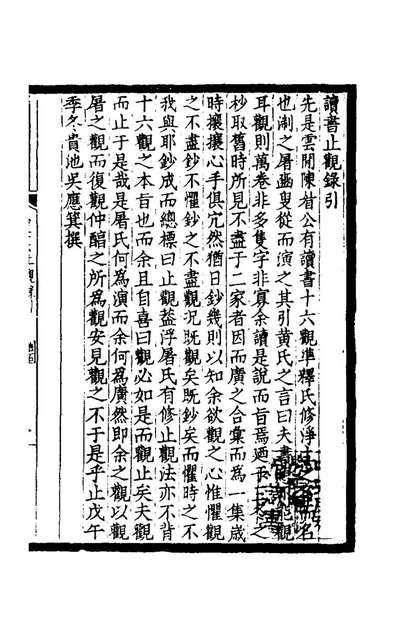 讀書止觀錄引
先是雲間陳眉公有讀書十六觀準釋氏修淨土
也淛之屠豳叟從而演之其引黄氏之言曰夫
耳觀則萬卷非多隻字非寡余讀是說而旨焉廼于
杪取舊時所見不盡于二家者因而廣之合彙而為一集歲
時攘攘心手俱宂然猶日鈔幾則以知余欲觀之心惟懼觀
之不盡鈔不懼鈔之不盡觀況既觀矣既鈔矣而懼時之不
我與耶鈔成而總標曰止觀葢浮屠氏有修止觀法亦不背
十六觀之本旨也而余且自喜曰觀必如是而觀止矣夫觀
而止于是哉是屠氏何為演而余何為廣然即余之觀以觀
屠之觀而復觀仲醇之所為觀安見觀之不于是乎止戊午
季冬貴池吳應箕撰